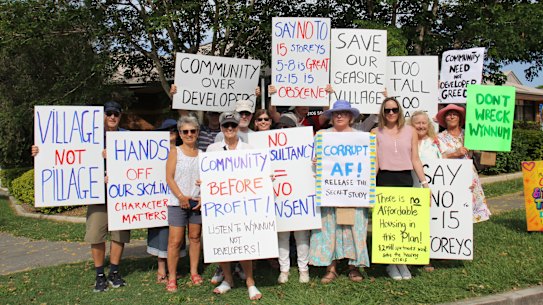 VILLAGE
NOT
PILLAGE
HANDS
OFF
OUR SKYLINE
CHARACTER
MATTERS
COMMUNITY
OVER
DEVELOPERS
COMMUNITY
BEFORE
PROFIT!
LISTEN TO WYNNUM
NOT
DEVELOPERS!
SAY NO TO
15 STOREYS
5-8 is GREAT
12-15 IS
OBSCENE!
NO
= NO
SAVE
OUR
SEASIDE
VILLAGE
CORRUPT
AF!
RELEASE THE
SECRET STUDY
TOO
TALL
There is no
Affordable
Housing in
this Plan!
COMMUNITY
NEED
NOT
DEVELOPER
GREED
SAY
NO
-15
STOREYS
DON'T
WRECK
WYNNUM